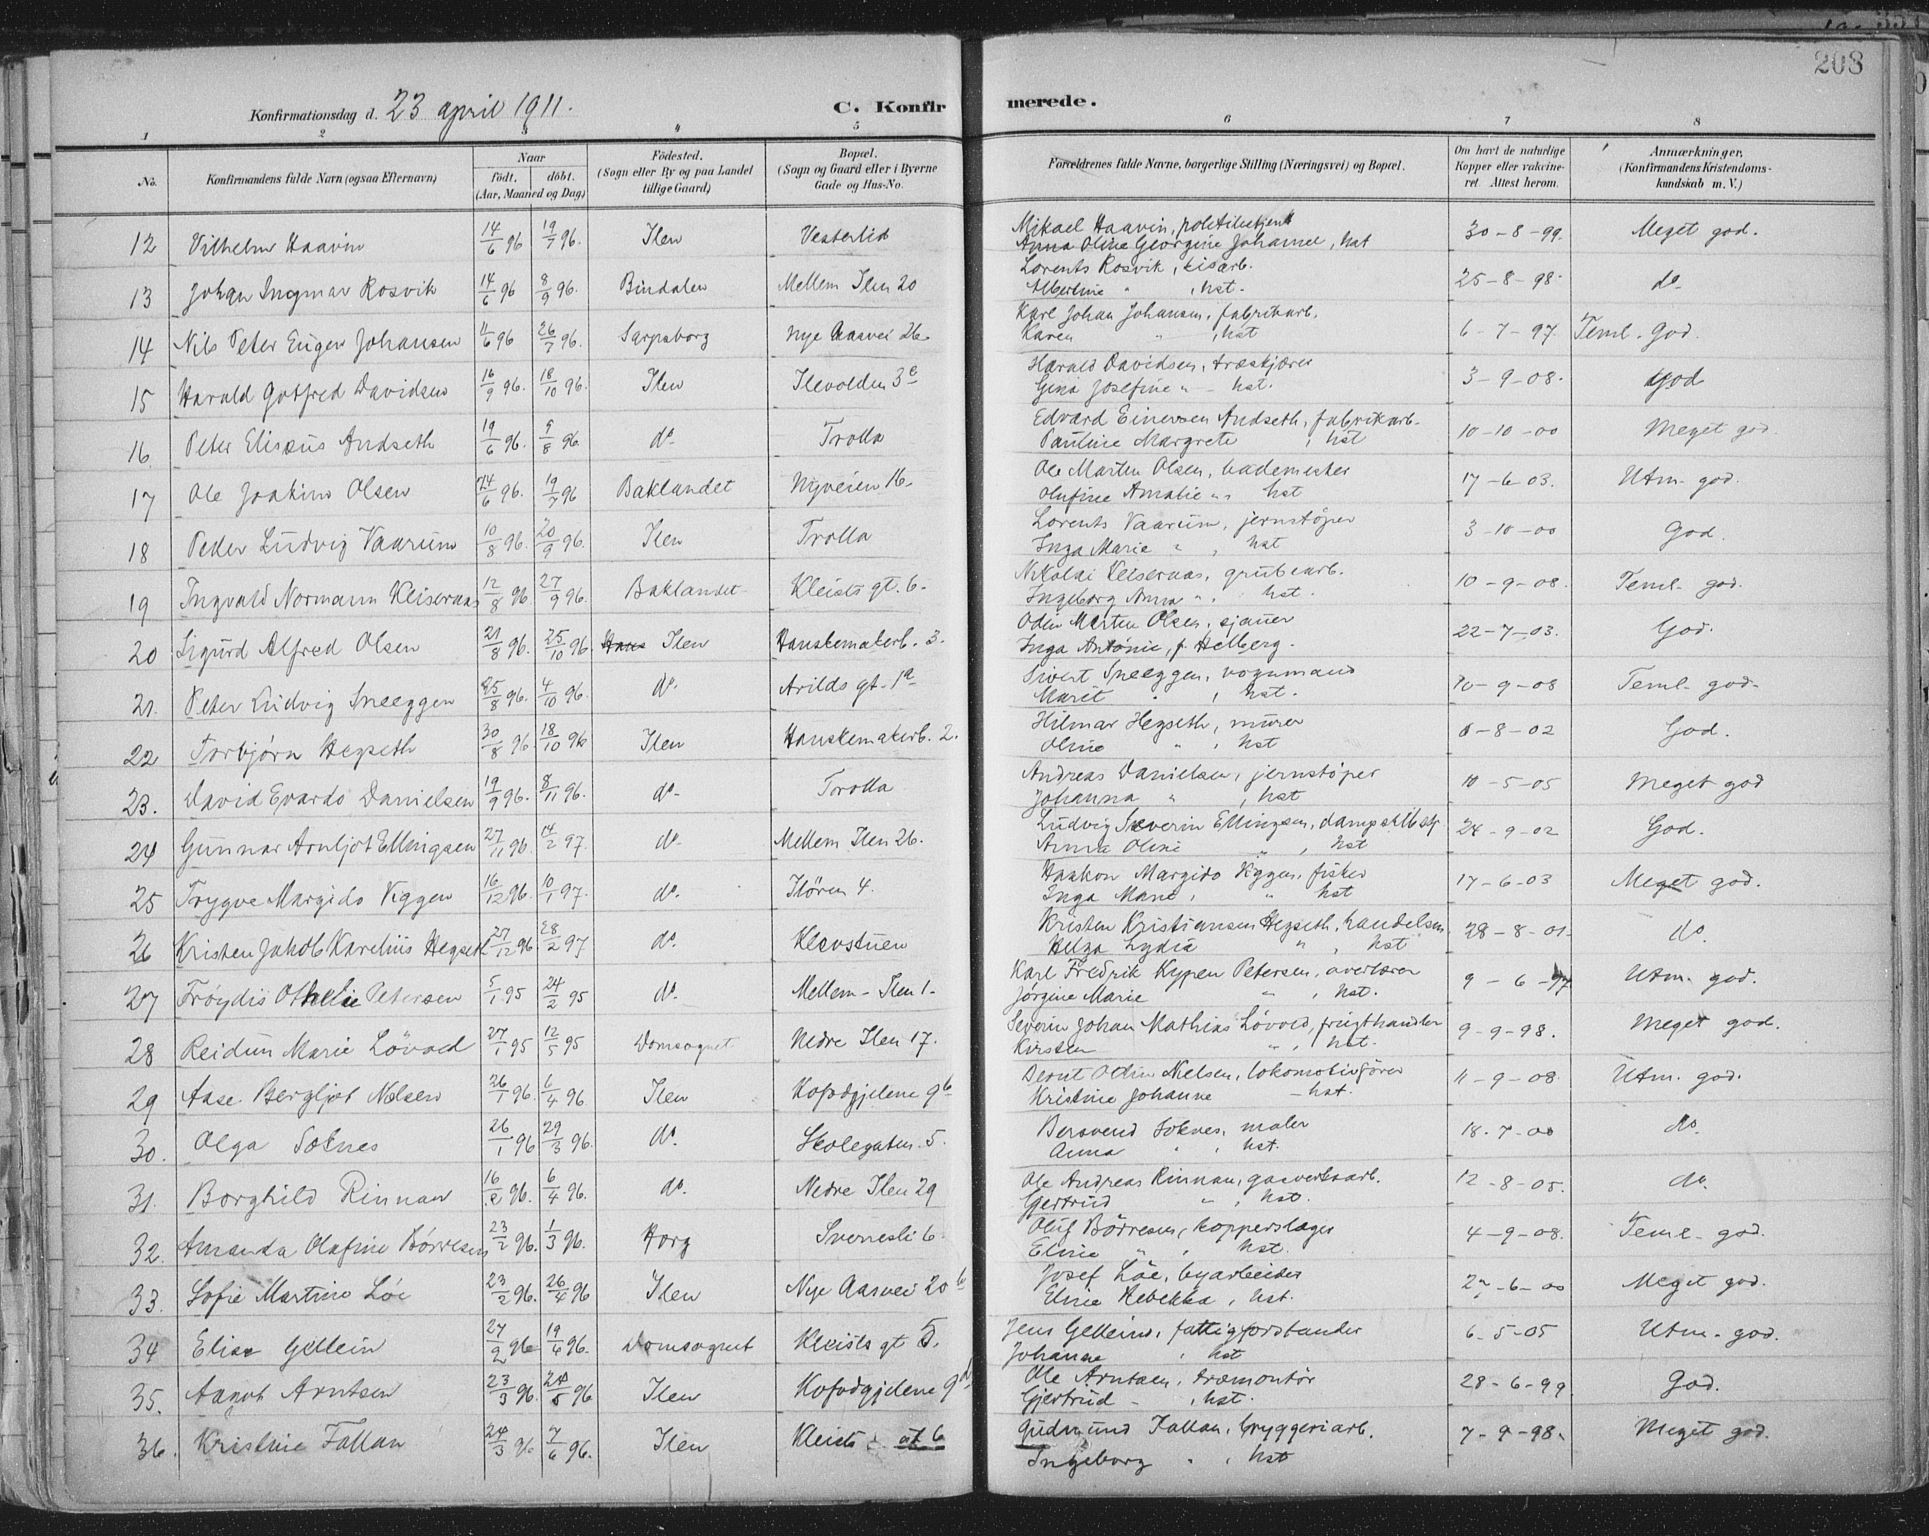 208
Konfirmationsdag d. 23 april 1911.
C. Konfirmerede.
1 2 3 4 5 6 7 8
No. Konfirmandens fulde Navn (ogsaa Efternavn) Naar født. døbt. (Aar, Maaned og Dag) Fødested. (Sogn eller By og paa Landet tillige Gaard) Bopæl. (Sogn og Gaard eller i Byerne Gade og Hus-No. Forældrenes fulde Navne, borgerlige Stilling (Næringsvei) og Bopæl. Om havt de naturlige Kopper eller vakcineret. Attest herom. Anmærkninger, (Konfirmandens Kristendomskundskab m. V.)
12 Vilhelm Haavin 14/6 96 19/7 96. Ilen Vesterlid Mikael Haavin, politibetjent 30-8-99. Meget god.
Anna Oline Georgine Johanne, hst
13 Johan Ingmar Rosvik 14/6 96 8/9 96. Bindalen Mellem Ilen 20 Lorents Rosvik, isarb. 25-8-98. do.
Albertine " , hst.
14 Nils Peter Eugen Johansen 4/6 96 26/7 96. Sarpsborg Nye Aasvei 26. Karl Johan Johansen, fabrikarb. 6-7-97. Teml. god.
Karen " , hst
15 Harald Gotfred Davidsen 16/9 96. 18/10 96. Ilen Ilevolden 3e Harald Davidsen, træskjærer 3-9-08. God
Gina Josefine " - hst.
16. Peter Elisæus Andseth 19/6 96. 9/8 96. do. Trolla Edvard Einersen Andseth, fabrikarb. 10-10-00 Meget god.
Pauline Margrete , hst
17 Ole Joakim Olsen 24/6 96. 19/7 96 Baklandet Nyveien 16. Ole Martin Olsen, bademester 17-6-03. Utm. god.
Olufine Amalie " hst
18 Peder Ludvig Vaarum 10/8 96. 20/9 96. Ilen Trolla Lorents Vaarum, jernstøper 3-10-00 God.
Inga Marie " , hst
19 Ingvald Normann Keisernaas 12/8 96. 27/9 96. Baklandet Kleists gt. 6. Nikolai Keisernaas, grubearb. 10-9-08. Teml. god.
Ingeborg Anna " . hst.
20 Sigurd Alfred Olsen 21/8 96. 25/10 96. Ilen Hanskemakerb. 3. Odin Martin Olsen, sjauer 22-7-03. God.
Inga Antonie, f. Helberg.
21. Peter Ludvig Sneeggen 25/8 96. 4/10 96. do. Arilds gt. 1a Sivert Sneeggen, vognmand 10-9-08 Teml. god.
Marit " , hst.
22 Torbjørn Hegseth 30/8 96. 18/10 96 Ilen Hanskemakerb. 2. Hilmar Hegseth, murer 6-8-02 God.
Oline " , hst
23. David Evardo Danielsen 19/9 96. 8/11 96. do. Trolla Andreas Danielsen, jernstøper 10-5-05 Meget god
Johanna " , hst
24 Gunnar Arnljot Ellingsen 27/11 96. 14/2 97. do. Mellem Ilen 26. Ludvig Severin Ellingsen, 24-9-02 God.
Anna Oline " , hst
25 Trygve Margido Viggen 16/12 96. 10/1 97. do. Ilören 4. Haakon Margido Viggen, fisker 17-6-03 Meget god.
Inga Marie, " hst
26 Kristen Jakob Karelius Hegseth 27/12 96 28/2 97 do. Kleivstuen Kristen Kristiansen Hegseth, handelsm. 28-8-01. do.
Helga Lydia " , hst
27 Frøydis Othelie Petersen 5/1 95 24/2 95 do. Mellem-Ilen 1. Karl Fredrik Kypen Petersen, overlærer 9-6-97 Utm. god.
Jørgine Marie " , hst.
28 Reidun Marie Løvold 27/1 95 12/5 95 Domsognet Nedre Ilen 17. Severin Johan Mathias Løvold, frugthandler 9-9-98. Meget god.
Kirsten " , hst.
29 Aase Bergljot Nelsen 26/1 96. 6/4 96. Ilen Hospdgjelene 9b Bernt Othin Nielsen, lokomotivfører 11-9-08. Utm. god.
Kristine Johanne - hst.
30. Olga Soknes 26/1 96 29/3 96. do. Skolegaten 5. Bersvend Soknes, maler 18-7-00 do.
Anna " , hst.
31. Borghild Rinnan 16/2 96. 6/4 96. do. Nedre Ilen 29 Ole Andreas Rinnan, gasverksarb. 12-8-05. do.
Gjertrud " , hst.
32. Amanda Olafine Børresen 23/2 96. 1/3 96. Horg Sverresli 6. Oluf Børresen, kopperslager 4-9-08. Teml. god.
Eline " , hst.
33. Sofie Martine Löe 23/2 96. 26/4 96 Ilen Nye Aasvei 20b Josef Löe, byarbeider 27-6-00 Meget god.
Eline Rebekka , hst.
34 Elise Gellein 27/2 96 19/4 96. Domsognet Kleists gt 5. Jens Gellein, fattigforstander 6-5-05 Utm. god.
Johanne " hst
35. Aagot Arntsen 23/3 96. 24/5 96 Ilen Hospdgjelene 9d Ole Arntsen, træmontör 28-6-99. God.
Gjertrud - , hst.
36. Kristine Fallan 24/3 96 7/6 96. Ilen Kleists gt 6 Gudmund Fallan, bryggeriarb. 7-9-98. Meget god.
Ingeborg " , hst